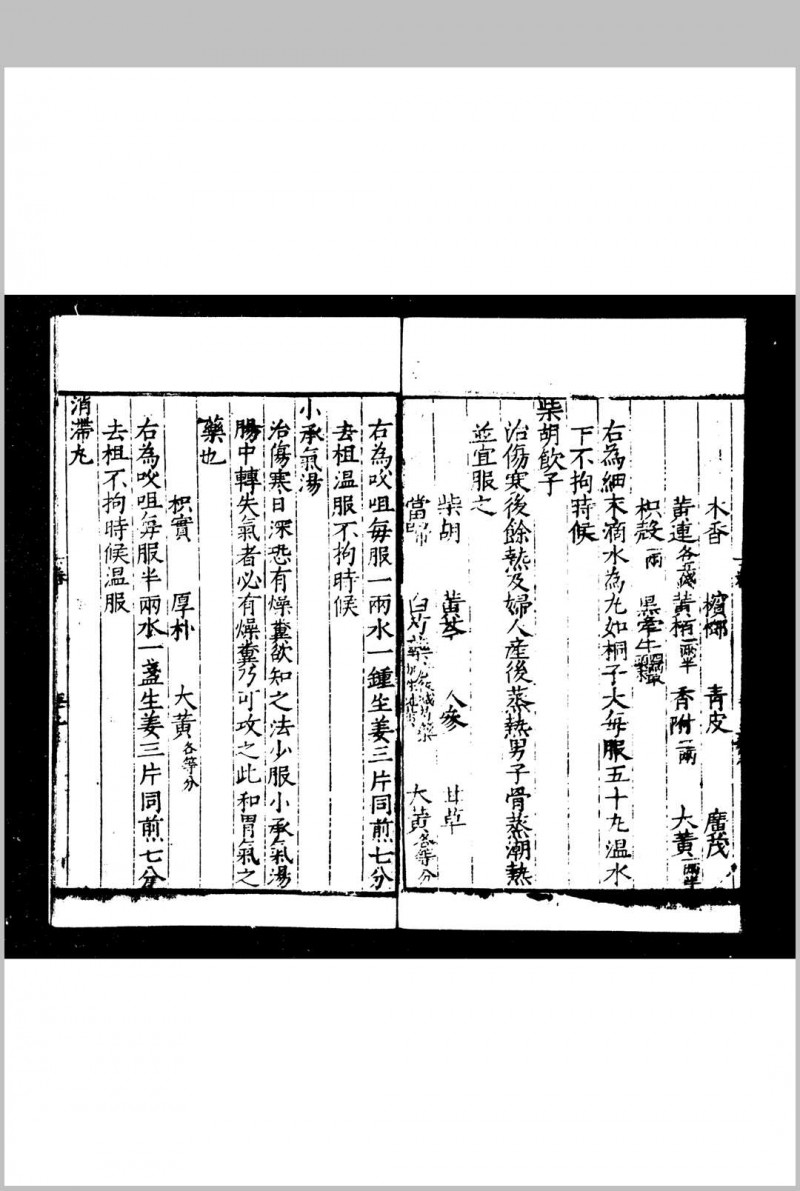 木香　檳榔　青皮　廣茂
黃連各二錢　黃柏一兩半　香附二兩　大黃一兩半
枳殼一兩　黑牽牛
右為細末滴水為丸如桐子大每服五十丸溫水
下不拘時候
柴胡飲子
治傷寒後餘熱及婦人産後蒸熱男子骨蒸潮熱
並宜服之
柴胡　黃芩　人參　甘草
當歸　白芍藥　大黃各等分
右為㕮咀每服一兩水一鍾生姜三片同煎七分
去柤溫服不拘時候
小承氣湯
治傷寒日深恐有燥糞欲知之法少服小承氣湯
腸中轉失氣者必有燥糞乃可攻之此和胃氣之
藥也
枳實　厚朴　大黃各等分
右為㕮咀每服半兩水一盞生姜三片同煎七分
去柤不拘時候溫服
消滯丸